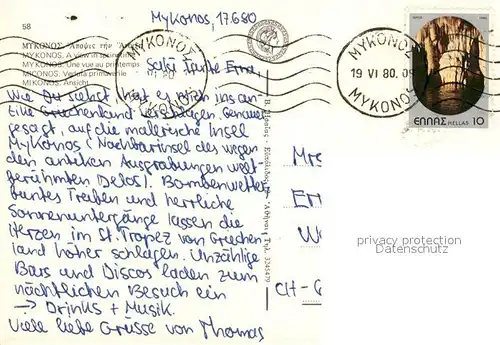 58
Mykonos, 17.6.80
ΜΥΚΟΝΟΣ Ἄποψις τὴν
MYKONOS. A view in spring
MYKONOS. Une vue au printemps
MICONOS. Veduta primaverile
MYKONOS. Ansicht
ΜΥΚΟΝΟΣ
MYKONOS
ΜΥΚΟΝΟΣ
19 VI 80.
MYKONOS
ΕΛΛΑΣ HELLAS 10
Salü Tante Erna,
Wie Du siehst hat es mich ins an-
tike Griechenland verschlagen. Genauer
gesagt, auf die malerische Insel
Mykonos (Nachbarinsel des wegen
den antiken Ausgrabungen welt-
berühmten Delos). Bombenwetter,
buntes Treiben und herrliche
Sonnenuntergänge lassen die
Herzen im St. Tropez von Griechen-
land höher schlagen. Unzählige
Bars und Discos laden zum
nächtlichen Besuch ein
→ Drinks + Musik.
Viele liebe Grüsse von Thomas
Mrs
Er
W
CH-
Τηλ. 3245479
privacy protection
Datenschutz